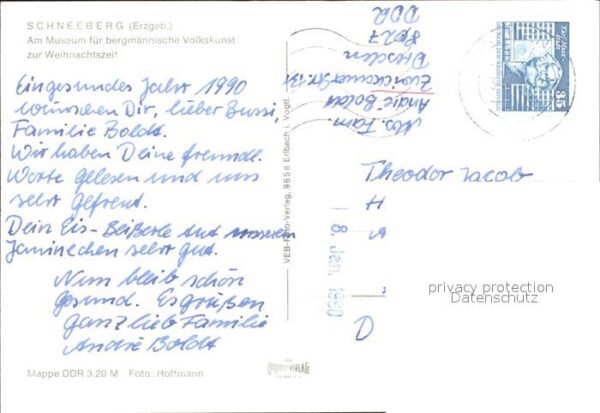 SCHNEEBERG (Erzgeb.)
Am Museum für bergmännische Volkskunst
zur Weihnachtszeit
Ein gesundes Jahr 1990
wünschen Dir, lieber Bussi,
Familie Boldt.
Wir haben Deine freundl.
Worte gelesen und uns
sehr gefreut.
Dein Eis-Beißerle tut unserem
Janinechen sehr gut.
Nun bleib schön
gesund. Es grüßen
ganz lieb Familie
André Boldt
Mappe DDR 3,20 M Foto: Hoffmann
VEB-Foto-Verlag, 9658 Erlbach i. Vogtl.
Abs. Fam.
André Boldt
Zwickauer Str. 131
Dresden
8027
DDR
85
Theodor Jacob
H
A
D
18. Jan. 1990
privacy protection
Datenschutz